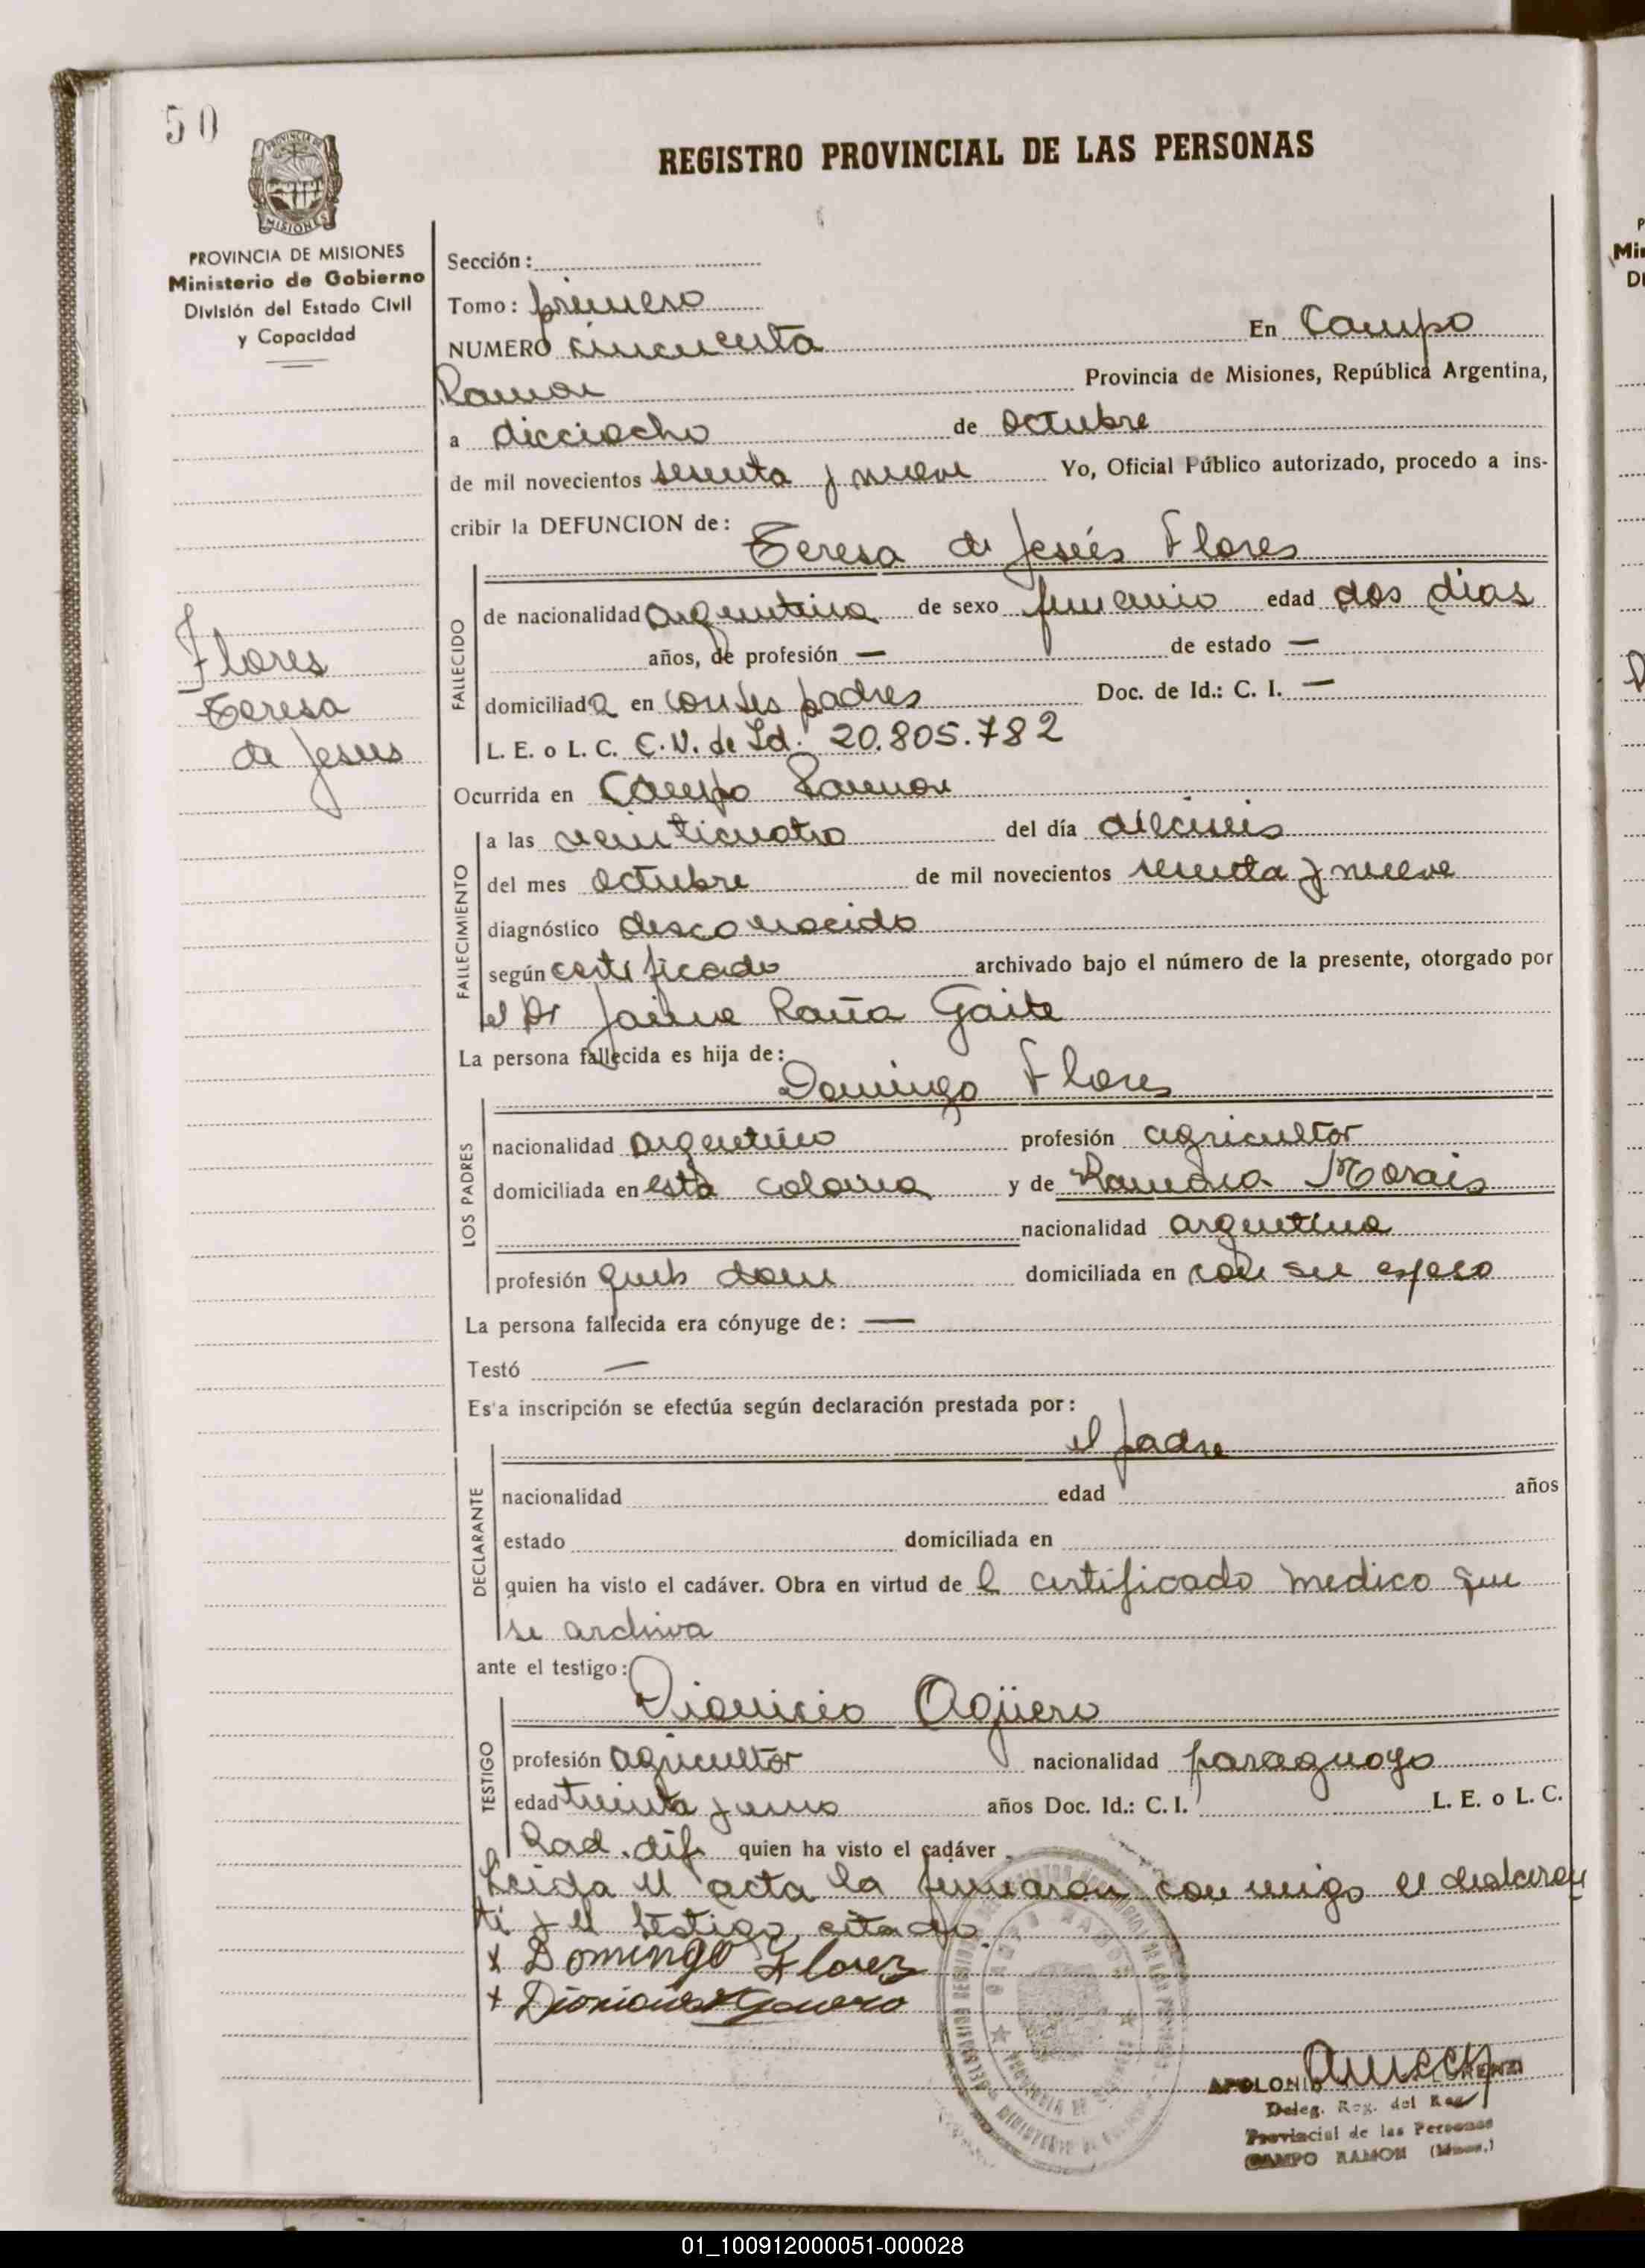 50
REGISTRO PROVINCIAL DE LAS PERSONAS
PROVINCIA DE MISIONES
Ministerio de Gobierno
División del Estado Civil
y Capacidad
Flores
Teresa
de Jesus
Sección :
Tomo : primero
NUMERO cincuenta En Campo
Ramon Provincia de Misiones, República Argentina,
a dicciocho de octubre
de mil novecientos sesenta y nueve Yo, Oficial Público autorizado, procedo a ins-
cribir la DEFUNCION de :
Teresa de Jesús Flores
FALLECIDO
de nacionalidad argentina de sexo femenino edad dos dias
años, de profesión — de estado —
domiciliada en con sus padres Doc. de Id.: C. I. —
L. E. o L. C. C.N. de Id. 20.805.782
Ocurrida en Campo Ramon
FALLECIMIENTO
a las veinticuatro del día dieciseis
del mes octubre de mil novecientos sesenta y nueve
diagnóstico desconocido
según certificado archivado bajo el número de la presente, otorgado por
el Dr Jaime Raña Gaite
La persona fallecida es hija de :
Domingo Flores
LOS PADRES
nacionalidad argentino profesión agricultor
domiciliada en esta colonia y de Ramona Morais
nacionalidad argentina
profesión queh dom domiciliada en con su esposo
La persona fallecida era cónyuge de : —
Testó —
Es'a inscripción se efectúa según declaración prestada por :
el padre
DECLARANTE
nacionalidad edad años
estado domiciliada en
quien ha visto el cadáver. Obra en virtud de l certificado medico que
se archiva
ante el testigo :
Dionicio Agüero
TESTIGO
profesión agricultor nacionalidad paraguayo
edad treinta y uno años Doc. Id.: C. I. L. E. o L. C.
Rad. dif. quien ha visto el cadáver
Leida el acta la firmaron con migo el declaran
te y el testigo citado
x Domingo Florez
+ Dionicio Aguero
APOLONIO
Deleg. Reg. del Reg.
Provincial de las Personas
CAMPO RAMON (Mnes.)
Mi
01_100912000051-000028